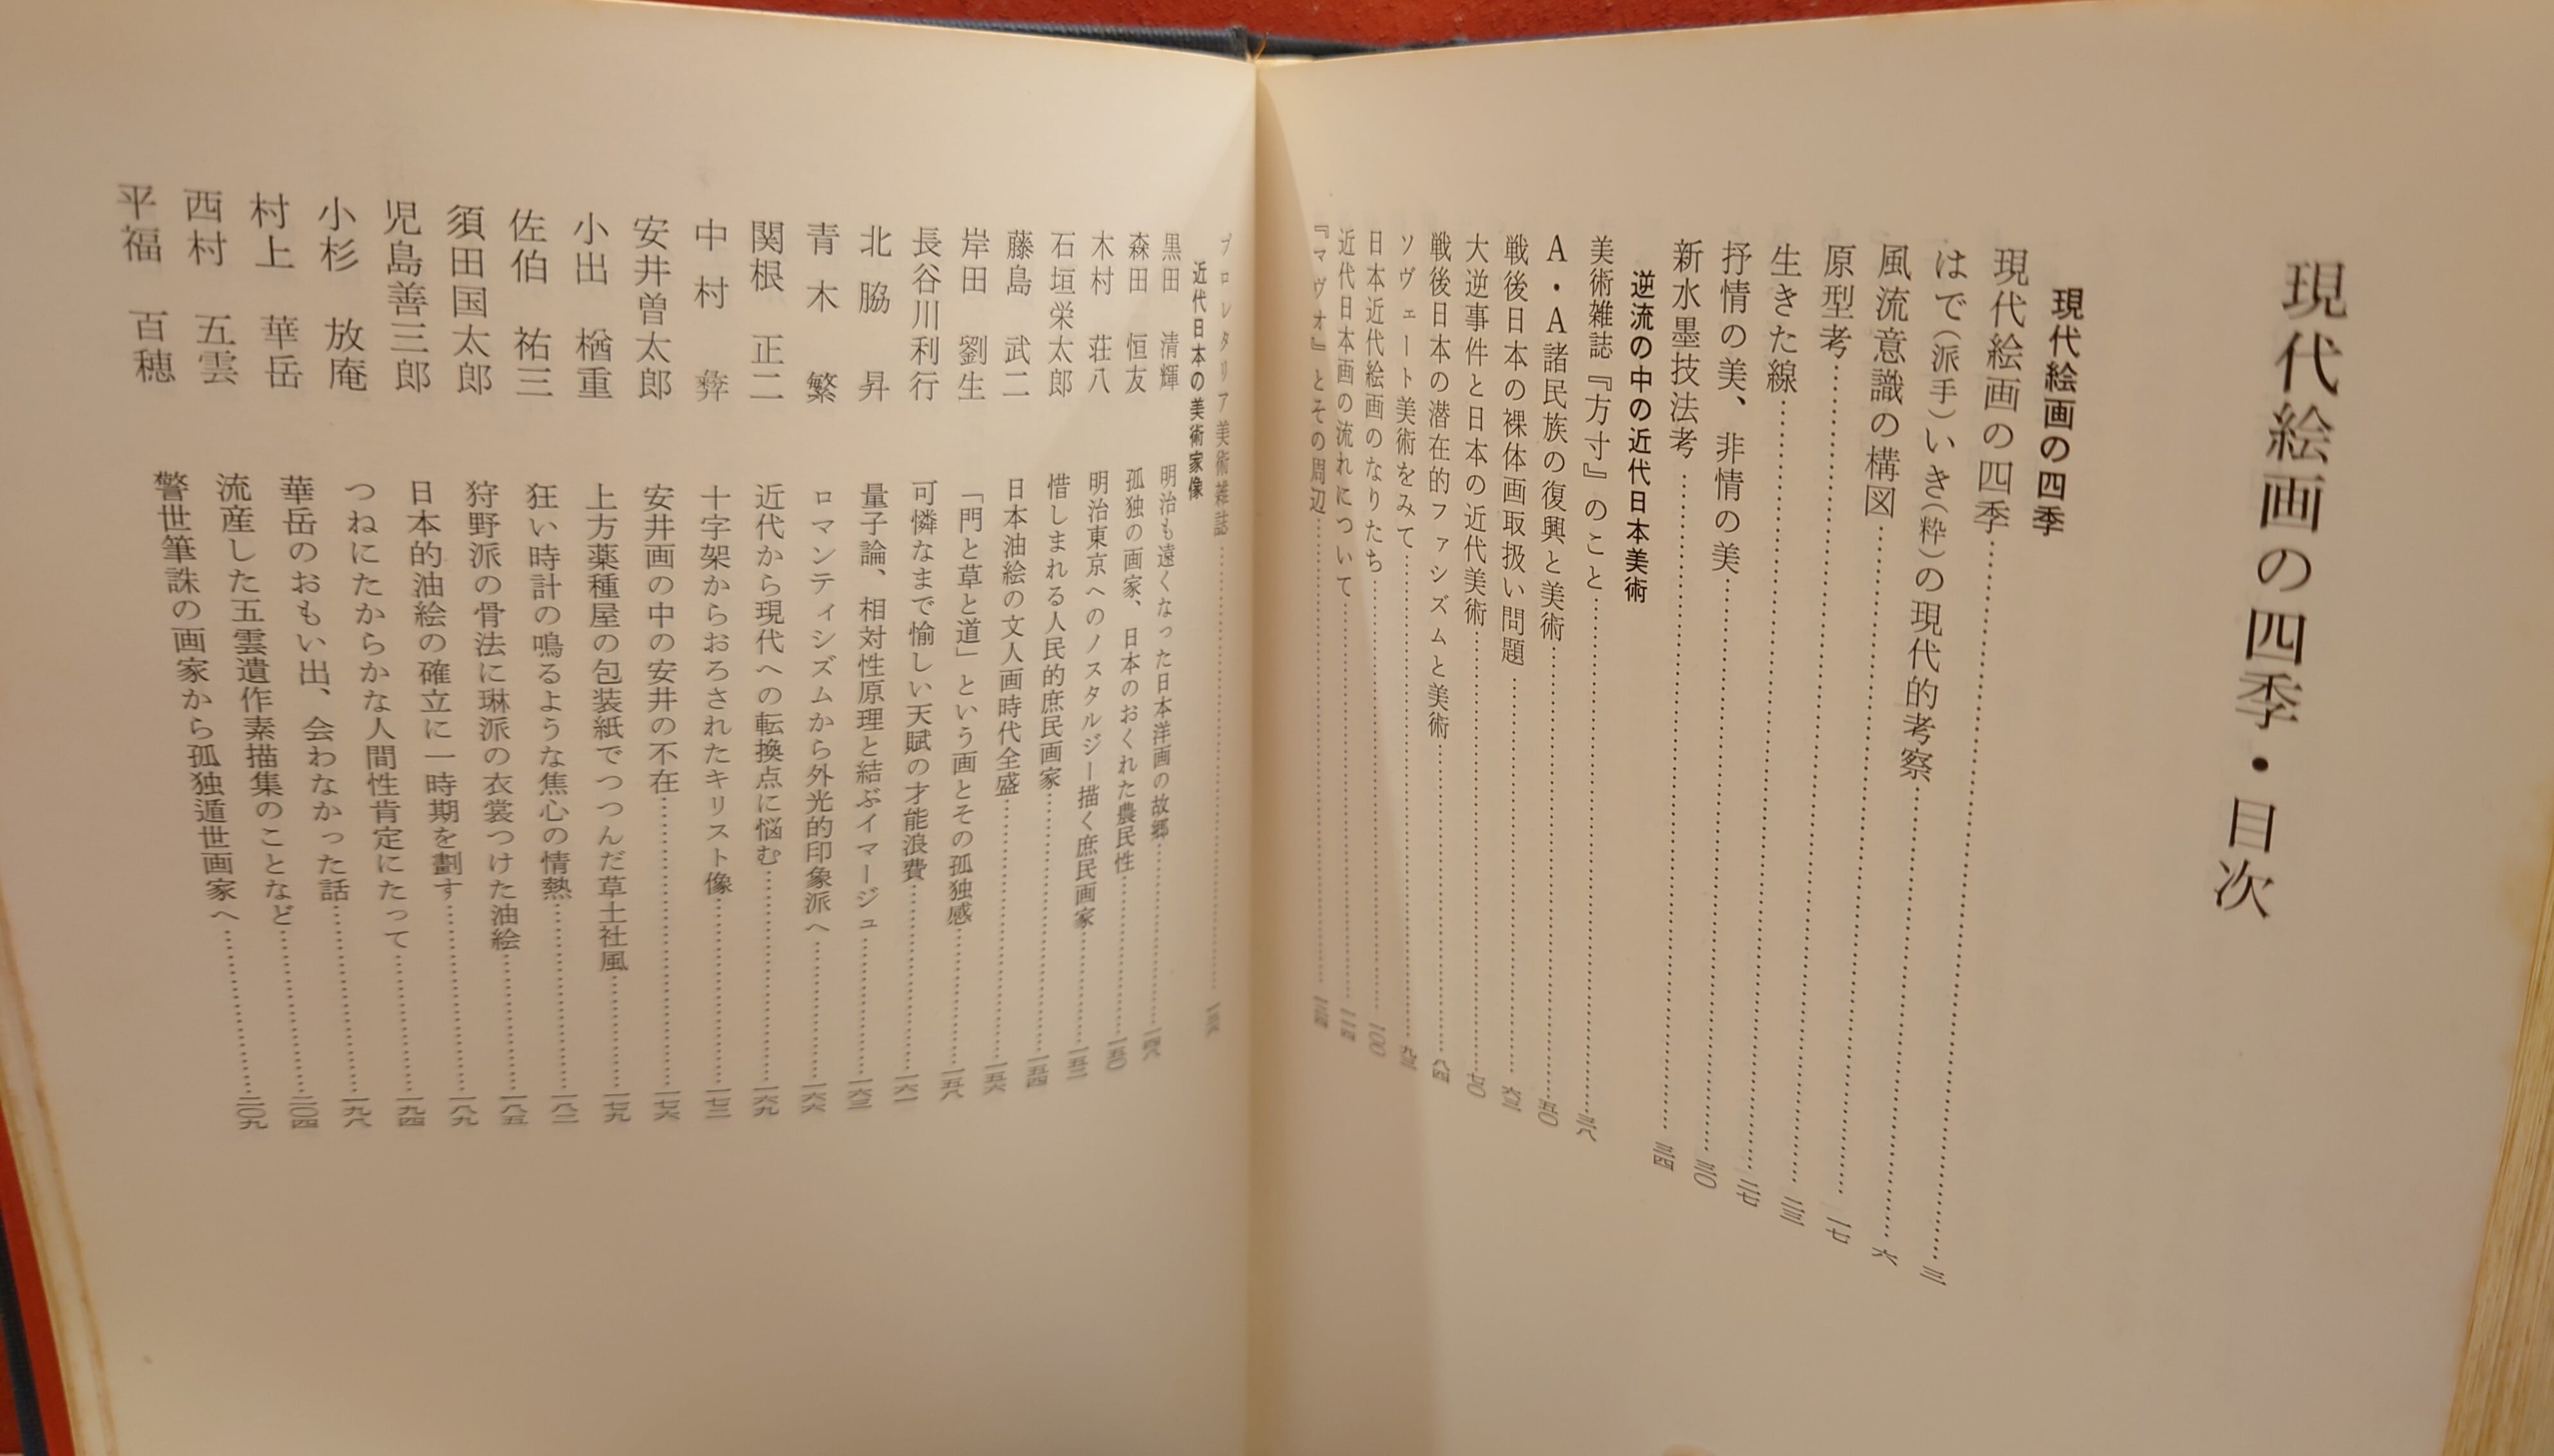 現代絵画の四季・目次
現代絵画の四季
現代絵画の四季……………三
はで(派手)いき(粋)の現代的考察……………六
風流意識の構図……………一七
原型考……………二三
生きた線……………二七
抒情の美、非情の美……………三〇
新水墨技法考……………三四
逆流の中の近代日本美術
美術雑誌『方寸』のこと……………三八
A・A諸民族の復興と美術……………五〇
戦後日本の裸体画取扱い問題……………六三
大逆事件と日本の近代美術……………七〇
戦後日本の潜在的ファシズムと美術……………八四
ソヴェート美術をみて……………九三
日本近代絵画のなりたち……………一〇〇
近代日本画の流れについて……………一一四
『マヴォ』とその周辺……………
プロレタリア美術雑誌……………
近代日本の美術家像
黒田 清輝 明治も遠くなった日本洋画の故郷……………一四八
森田 恒友 孤独の画家、日本のおくれた農民性……………一五〇
木村 荘八 明治東京へのノスタルジー描く庶民画家……………一五二
石垣栄太郎 惜しまれる人民的庶民画家……………一五四
藤島 武二 日本油絵の文人画時代全盛……………一五六
岸田 劉生 「門と草と道」という画とその孤独感……………一五八
長谷川利行 可憐なまで愉しい天賦の才能浪費……………一六一
北脇 昇 量子論、相対性原理と結ぶイマージュ……………一六三
青木 繁 ロマンティシズムから外光的印象派へ……………一六六
関根 正二 近代から現代への転換点に悩む……………一六九
中村 彝 十字架からおろされたキリスト像……………一七二
安井曽太郎 安井画の中の安井の不在……………一七六
小出 楢重 上方薬種屋の包装紙でつつんだ草土社風……………一七九
佐伯 祐三 狂い時計の鳴るような焦心の情熱……………一八二
須田国太郎 狩野派の骨法に琳派の衣裳つけた油絵……………一八五
児島善三郎 日本的油絵の確立に一時期を劃す……………一八九
小杉 放庵 つねにたからかな人間性肯定にたって……………一九四
村上 華岳 華岳のおもい出、会わなかった話……………一九八
西村 五雲 流産した五雲遺作素描集のことなど……………二〇四
平福 百穂 警世筆誅の画家から孤独遁世画家へ……………二〇九